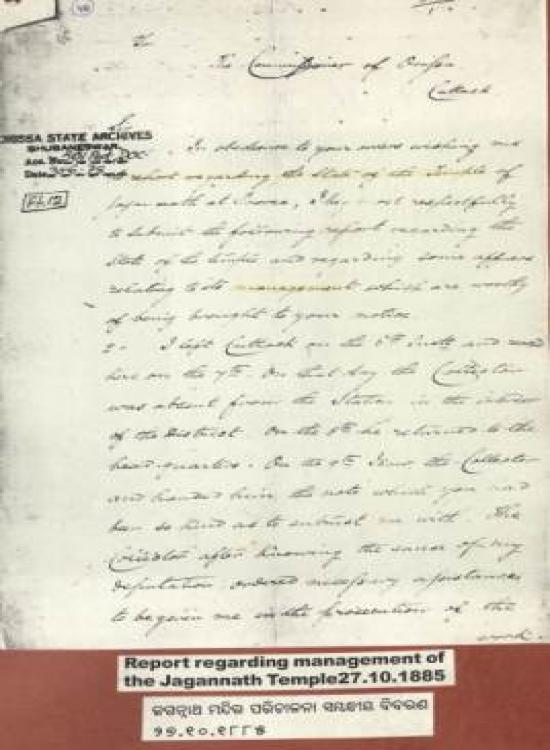 To
The Commissioner of Orissa
Cuttack
Sir
ORISSA STATE ARCHIVES
BHUBANESWAR
Acc.
Date
In obedience to your orders wishing me
report regarding the State of the Temple of
Jagannath at Pooree, I beg most respectfully
to submit the following report regarding the
State of the temple and regarding some affairs
relating to its management which are worthy
of being brought to your notice
2. I left Cuttack on the 6th Inst. and
here on the 7th. On that day the Collector
was absent from the Station in the interior
of the District. On the 8th he returned to the
head-quarters. On the 9th I saw the Collector
and handed him the note which you had
been so kind as to entrust me with. The
Collector after knowing the cause of my
deputation ordered necessary assistance
to be given me in the prosecution of the
work.
Report regarding management of
the Jagannath Temple27.10.1885
ଜଗନ୍ନାଥ ମନ୍ଦିର ପରିଚାଳନା ସମ୍ବନ୍ଧୀୟ ବିବରଣ
୨୭.୧୦.୧୮୮୫